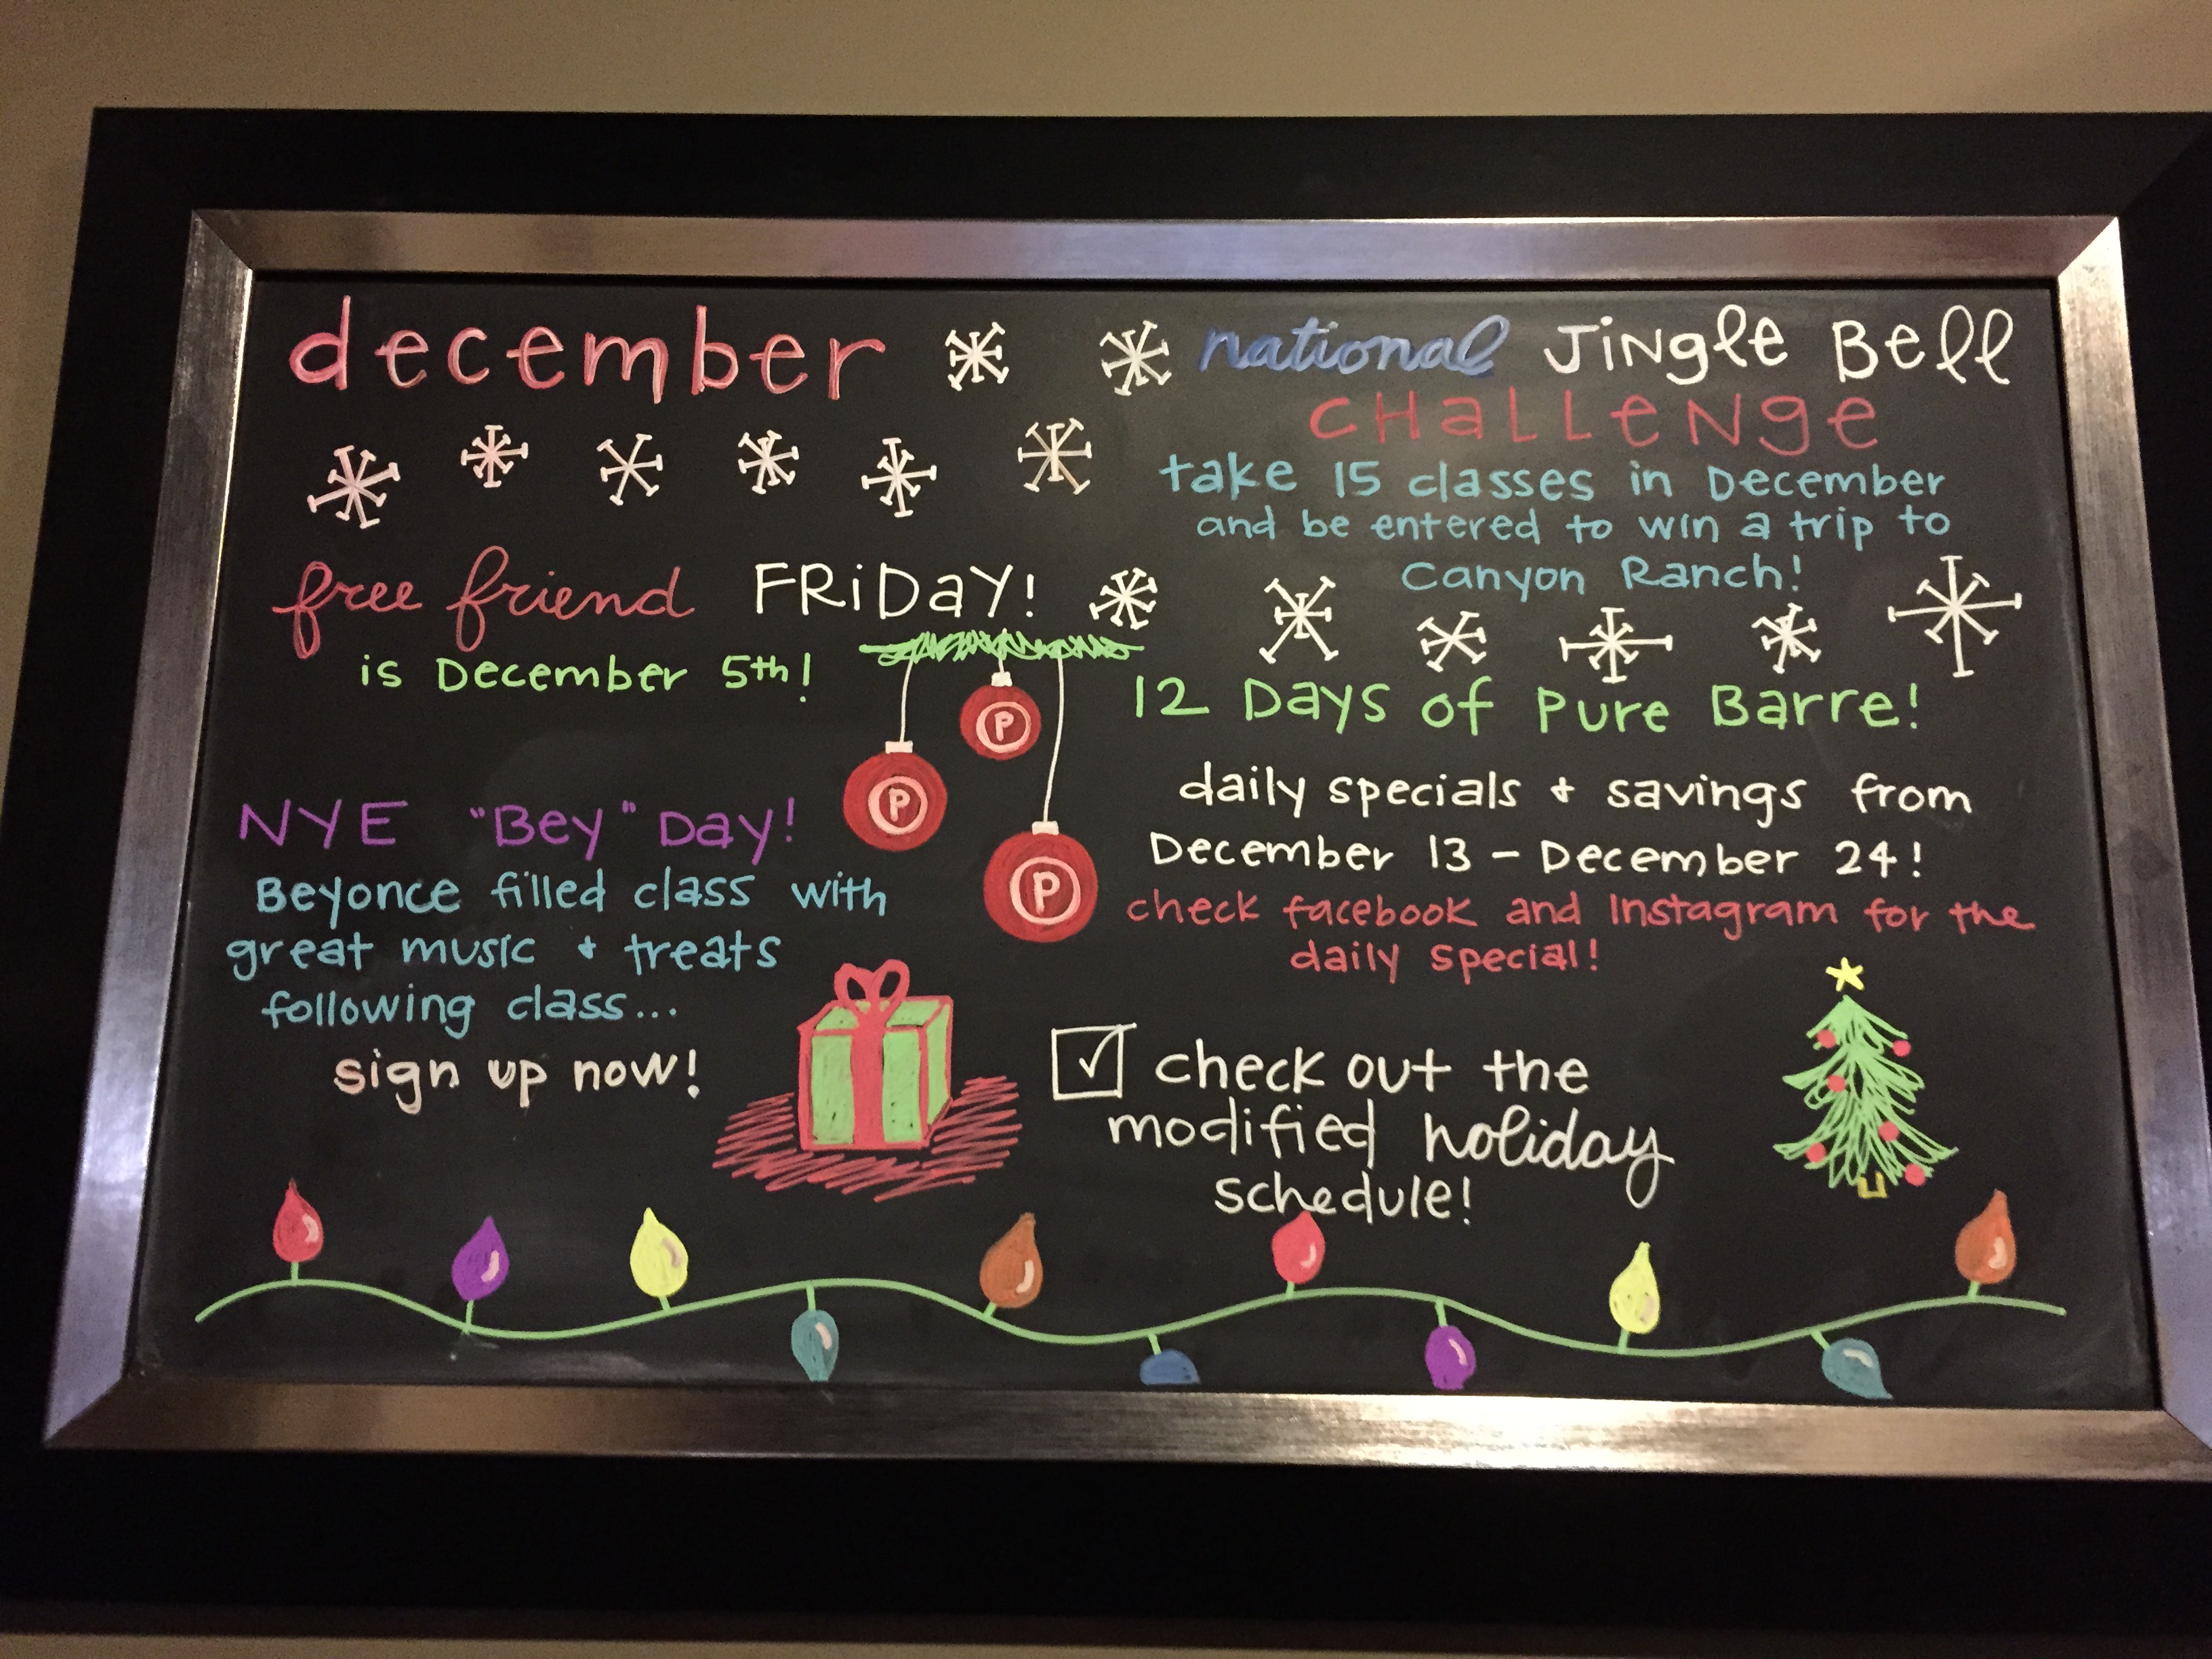 december
free friend FRiDaY!
is December 5th!
P
P
P
NYE "Bey" Day!
Beyonce filled class with
great music + treats
following class...
sign up now!
national Jingle Bell
CHaLLeNge
take 15 classes in December
and be entered to win a trip to
Canyon Ranch!
12 Days of Pure Barre!
daily specials + savings from
December 13 - December 24!
check facebook and Instagram for the
daily special!
check out the
modified holiday
schedule!